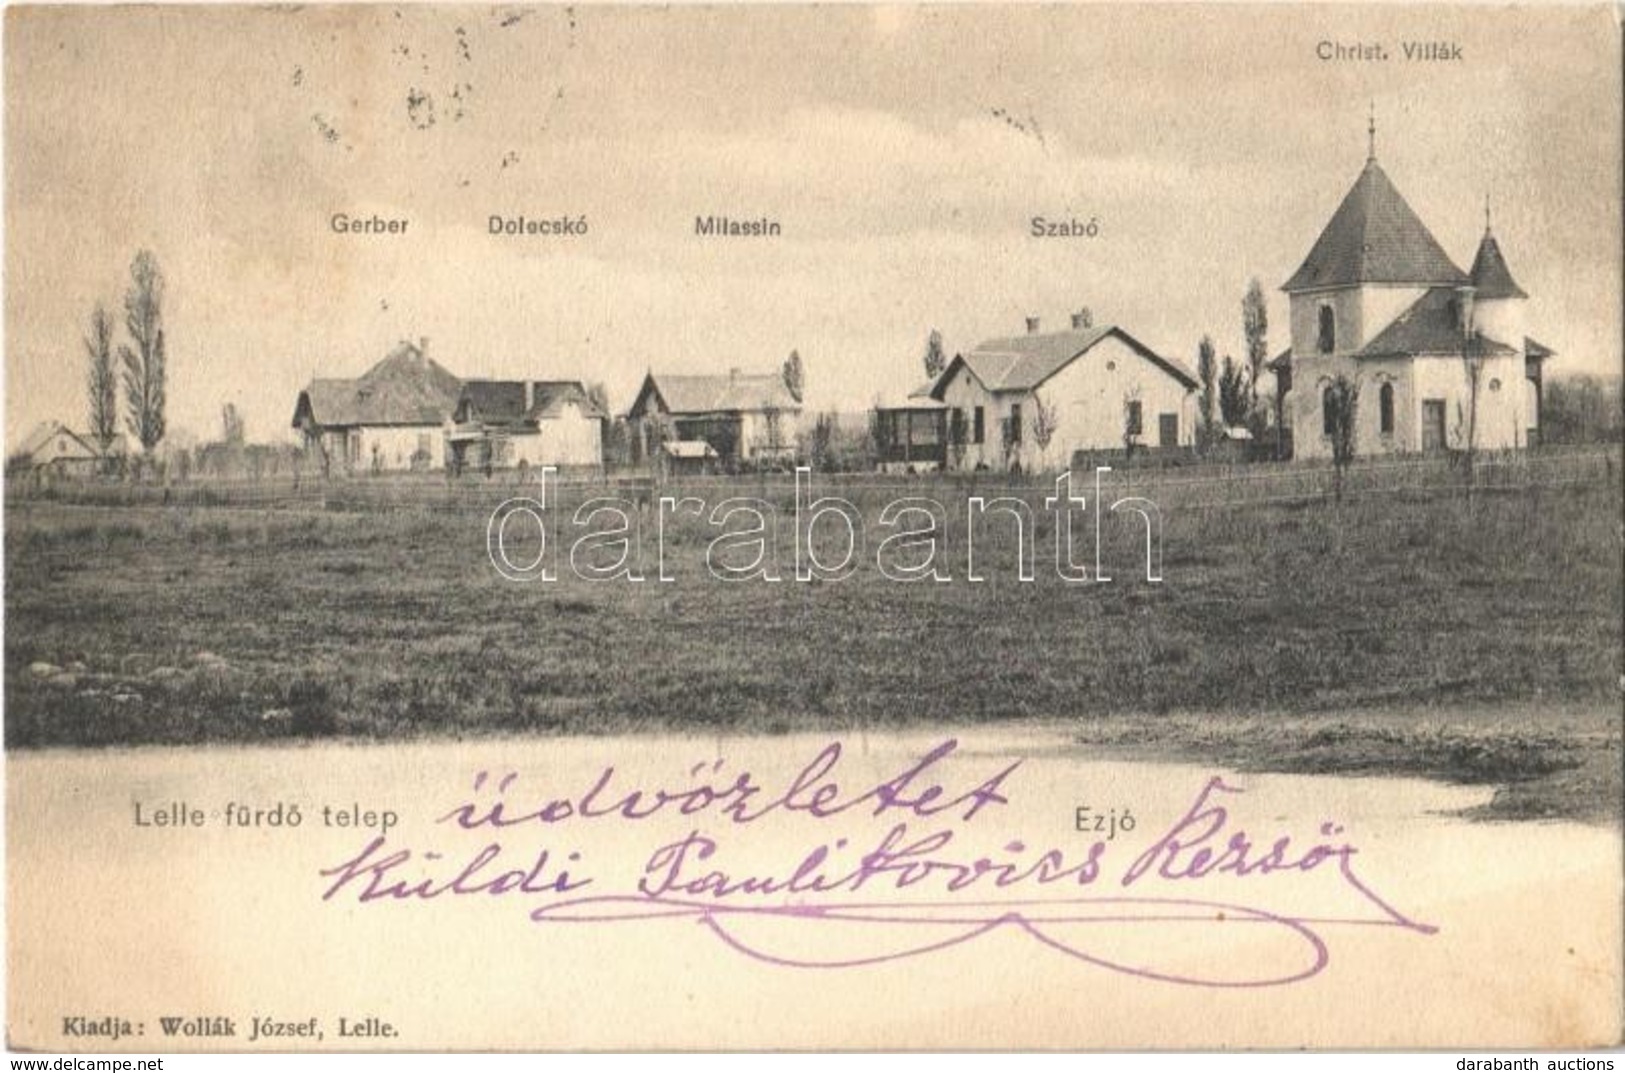 Christ. Villák
Gerber Dolecskó Milassin Szabó
darabanth
Lelle fürdő telep üdvözletet Ezjó
Küldi Paulikovics Rezső
Kiadja: Wollák József, Lelle.
Powered by delcampe.net darabanth auctions